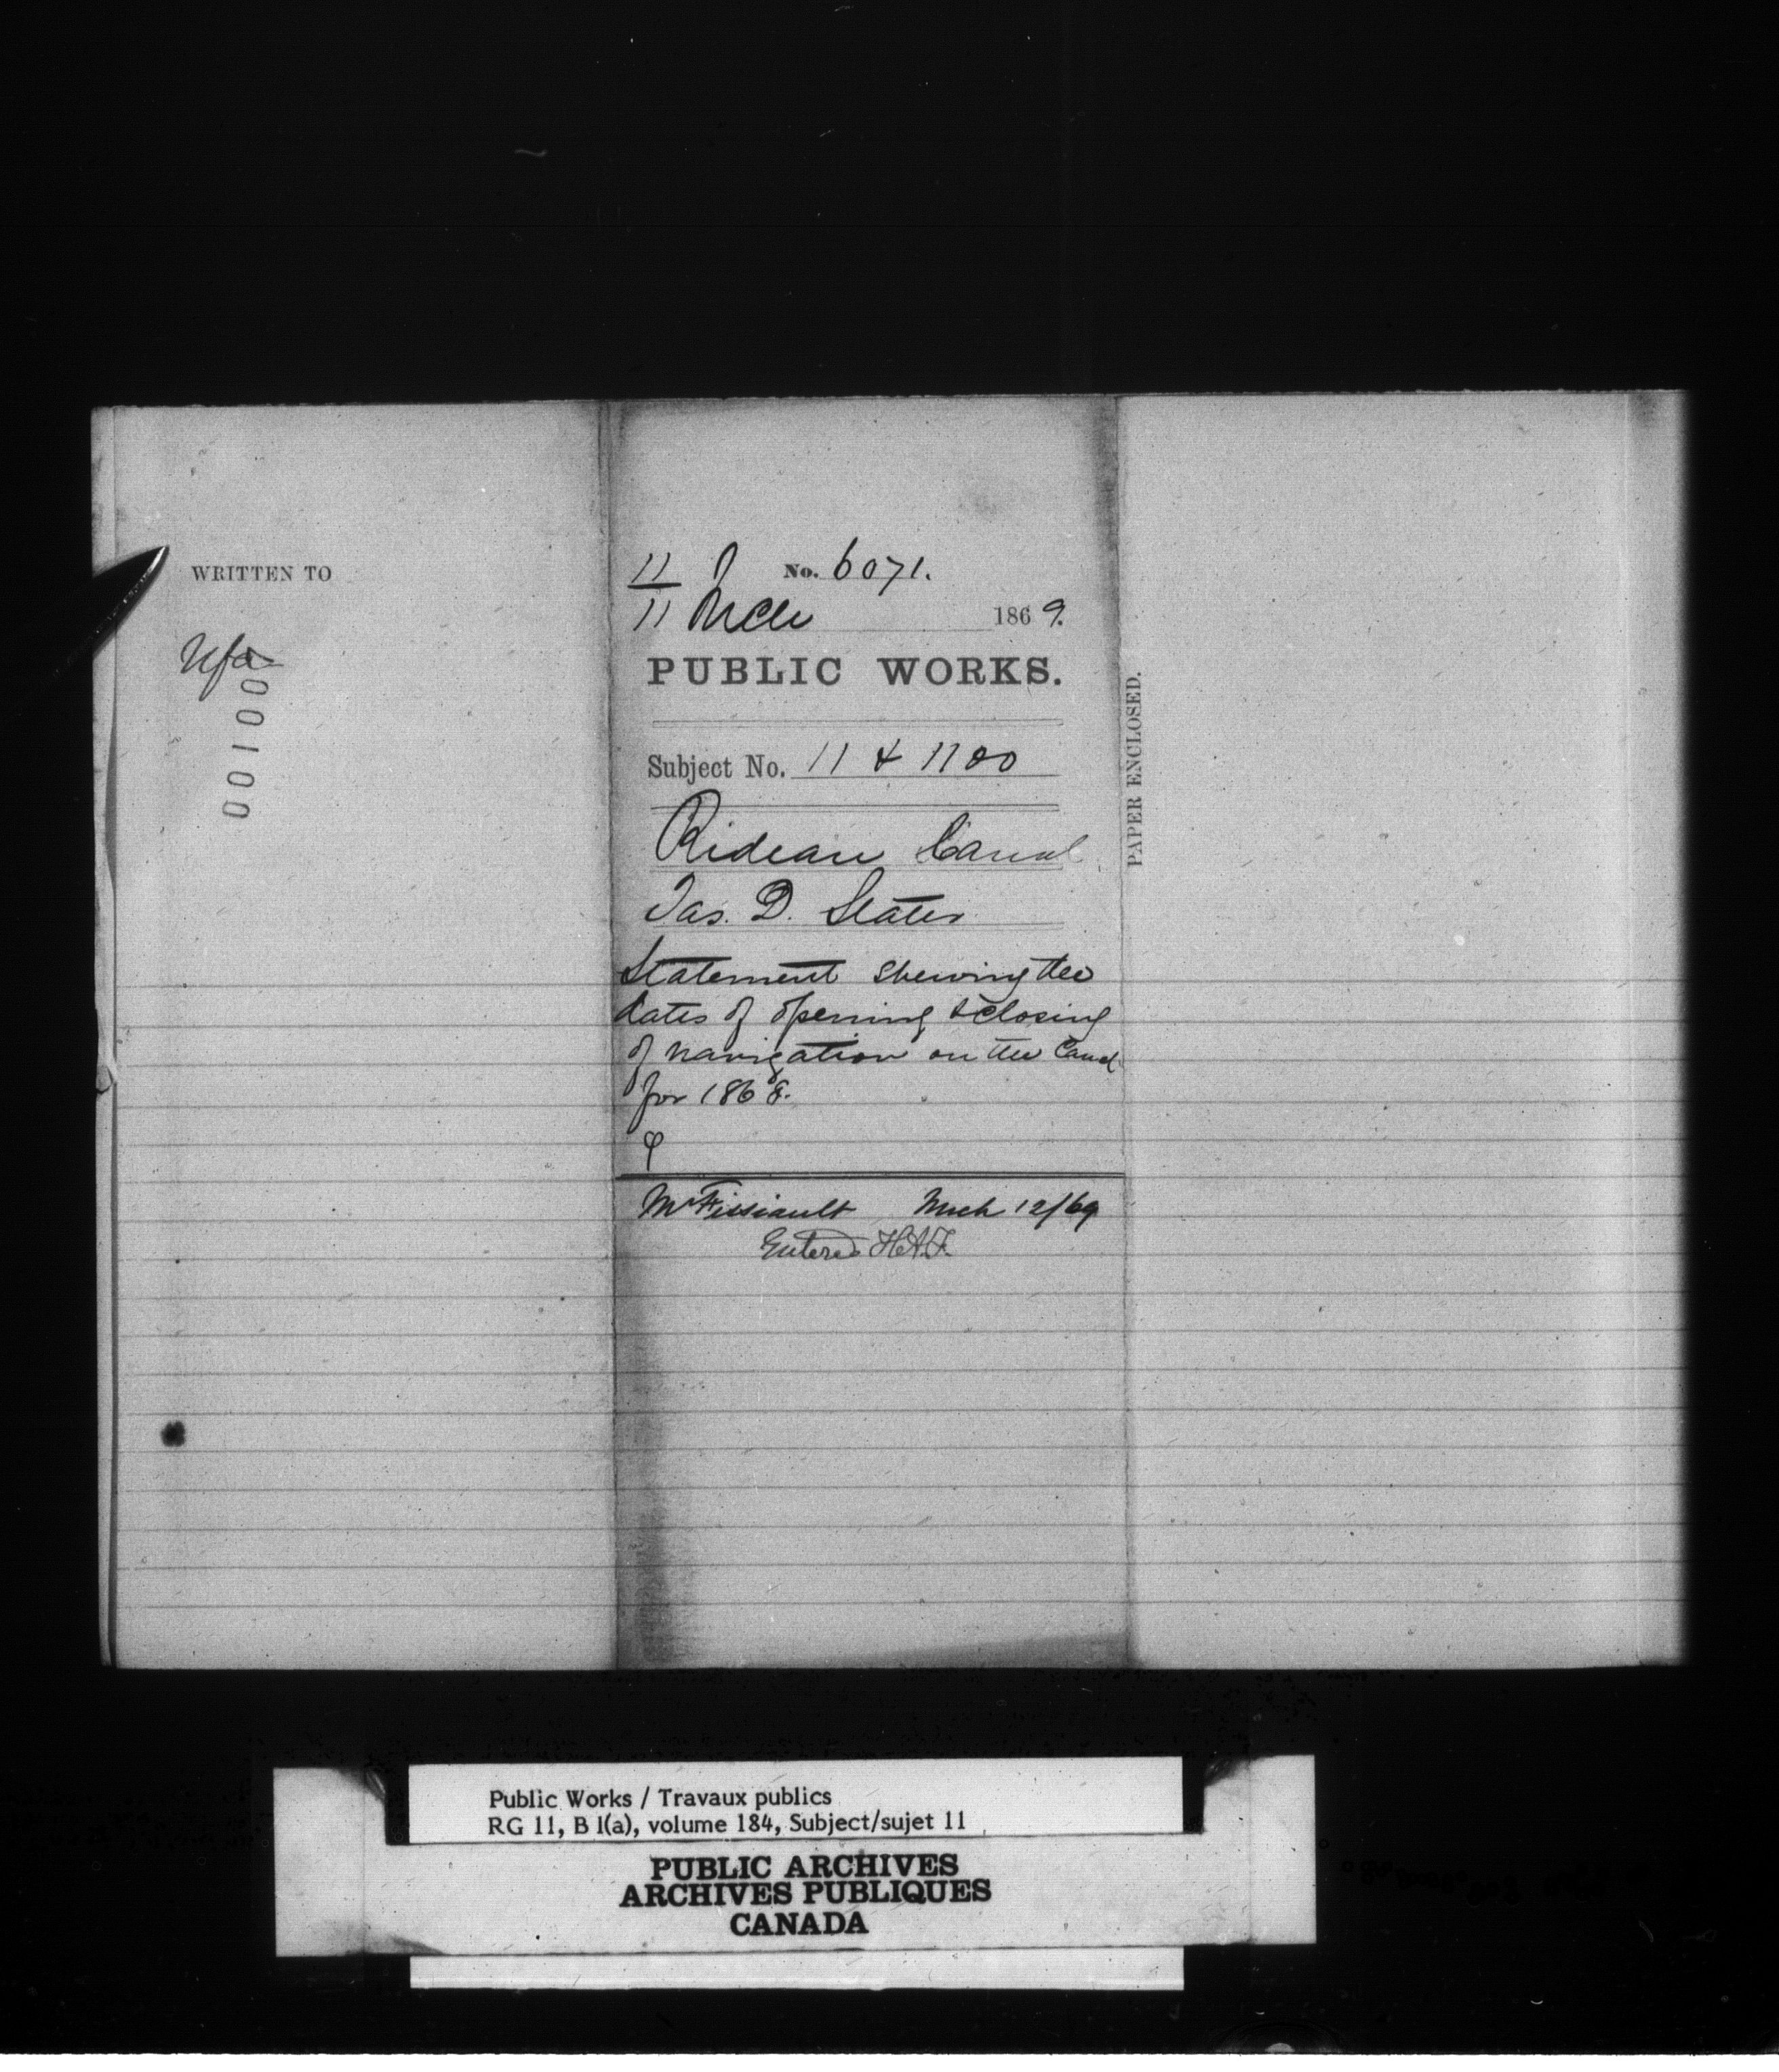 WRITTEN TO
Nfa
00100
11 No. 6071.
11 Mch 1869.
PUBLIC WORKS.
Subject No. 11 & 1100
Rideau Canal
Jas. D. Slater
Statement shewing the
dates of opening & closing
of navigation on the Canal
for 1868.
Mr Fissiault Mch 12/69
Entered H.A.F.
PAPER ENCLOSED.
Public Works / Travaux publics
RG 11, B 1(a), volume 184, Subject/sujet 11
PUBLIC ARCHIVES
ARCHIVES PUBLIQUES
CANADA